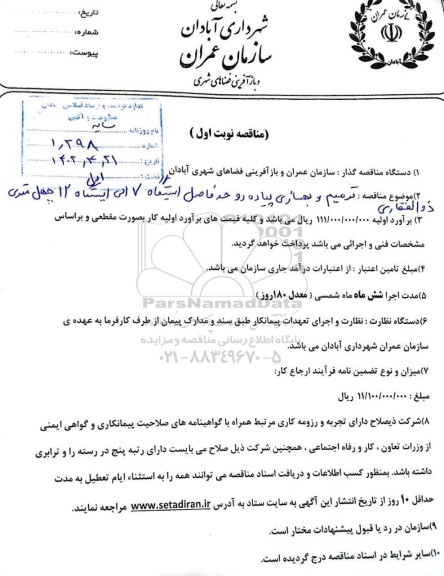 بسمه تعالی
شهرداری آبادان
سازمان عمران
و بازآفرینی فضاهای شهری
تاریخ:
شماره:
پیوست:
سازمان عمران
آبادان
نام روزنامه: سایه
شماره: ۱,۲۹۸
تاریخ: ۱۴۰۲,۴,۲۱
(مناقصه نوبت اول )
۱) دستگاه مناقصه گذار : سازمان عمران و بازآفرینی فضاهای شهری آبادان
۲)موضوع مناقصه : ترمیم و بهسازی پیاده رو حدفاصل ایستگاه ۷ الی ایستگاه ۱۲ چهل متری
ذوالفقاری
۳) برآورد اولیه ۱۱۱/۰۰۰/۰۰۰/۰۰۰ ریال می باشد و کلیه قیمت های برآورد اولیه کار بصورت مقطعی و براساس
مشخصات فنی و اجرائی می باشد پرداخت خواهد گردید.
۴)مبلغ تامین اعتبار : از اعتبارات درآمد جاری سازمان می باشد.
۵)مدت اجرا شش ماه ماه شمسی ( معدل ۱۸۰روز )
۶)دستگاه نظارت : نظارت و اجرای تعهدات پیمانکار طبق سند و مدارک پیمان از طرف کارفرما به عهده ی
سازمان عمران شهرداری آبادان می باشد.
۷)میزان و نوع تضمین نامه فرآیند ارجاع کار:
مبلغ : ۱۱/۱۰۰/۰۰۰/۰۰۰ ریال
۸)شرکت ذیصلاح دارای تجربه و رزومه کاری مرتبط همراه با گواهینامه های صلاحیت پیمانکاری و گواهی ایمنی
از وزرات تعاون ، کار و رفاه اجتماعی . همچنین شرکت ذیل صلاح می بایست دارای رتبه پنج در رسته را و ترابری
داشته باشد. بمنظور کسب اطلاعات و دریافت اسناد مناقصه می توانند همه را به استثناء ایام تعطیل به مدت
حداقل ۱۰ روز از تاریخ انتشار این آگهی به سایت ستاد به آدرس www.setadiran.ir مراجعه نمایند.
۹)سازمان در رد یا قبول پیشنهادات مختار است.
۱۰)سایر شرایط در اسناد مناقصه درج گردیده است.
ParsNamadData
پایگاه اطلاع رسانی مناقصه و مزایده
۰۲۱-۸۸۳۴۹۶۷۰-۵